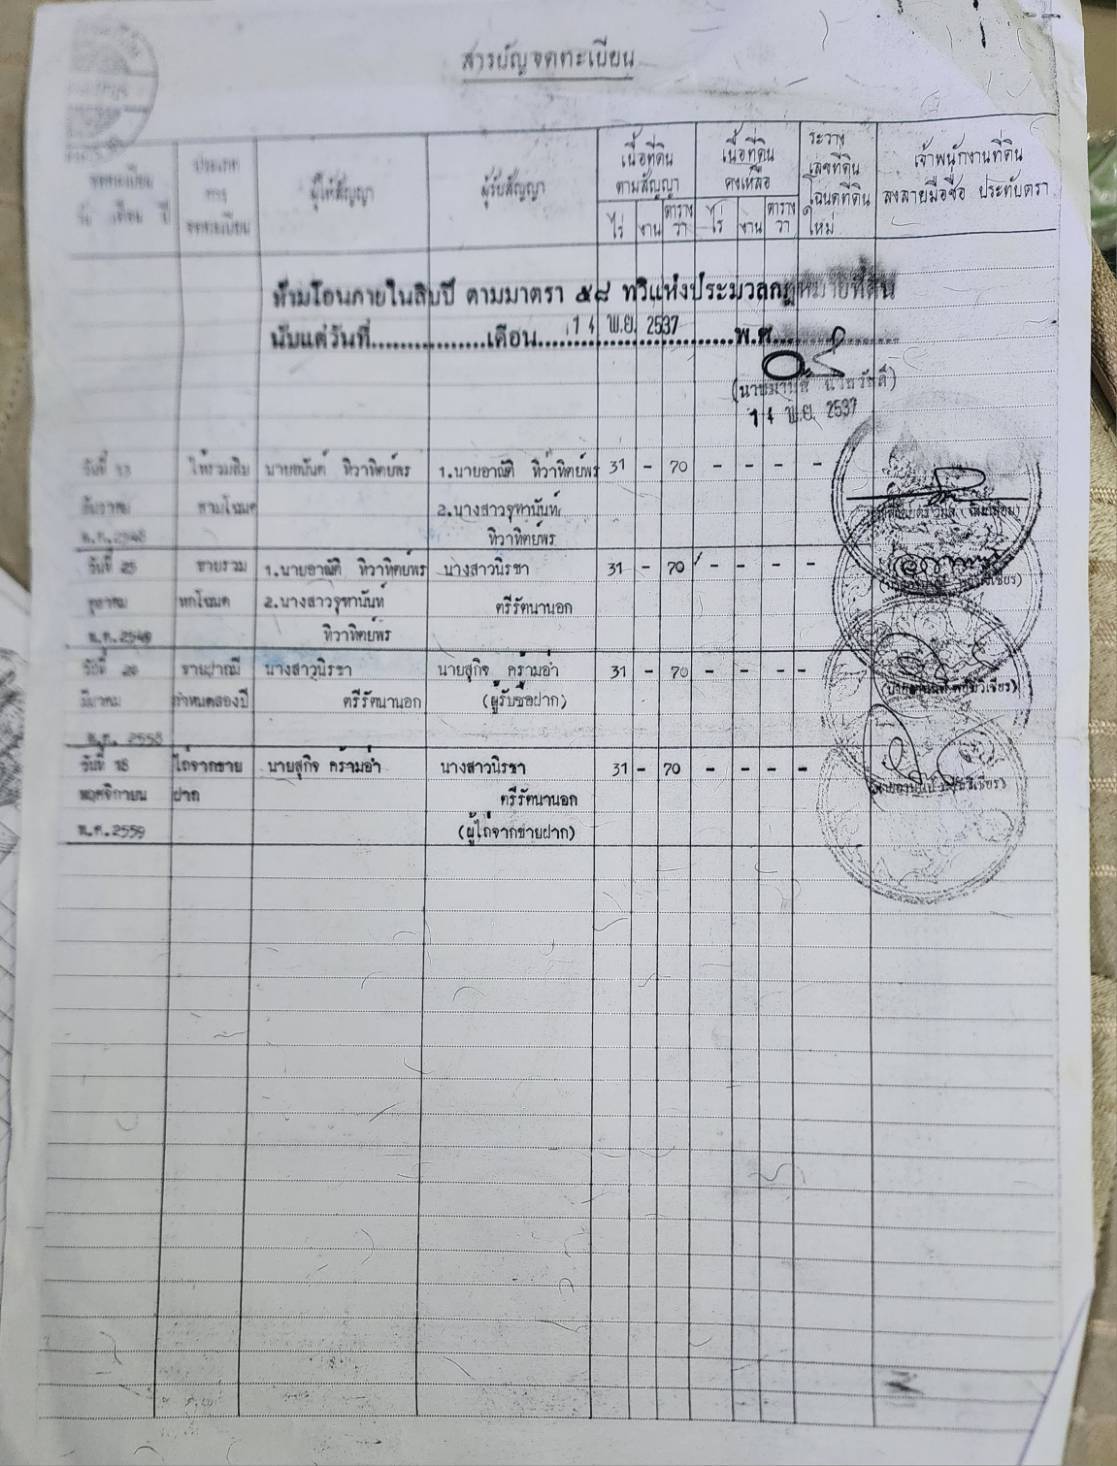 สารบัญจดทะเบียน
จดทะเบียน
วัน เดือน ปี
ประเภท
การ
จดทะเบียน
ผู้ให้สัญญา
ผู้รับสัญญา
เนื้อที่ดิน
ตามสัญญา
ไร่ งาน ตาราง
วา
เนื้อที่ดิน
คงเหลือ
ไร่ งาน ตาราง
วา
ระวาง
เลขที่ดิน
โฉนดที่ดิน
ใหม่
เจ้าพนักงานที่ดิน
ลงลายมือชื่อ ประทับตรา
ห้ามโอนภายในสิบปี ตามมาตรา ๕๘ ทวิแห่งประมวลกฎหมายที่ดิน
นับแต่วันที่................เดือน....14 พ.ย. 2537........พ.ศ...............
14 พ.ย. 2537
วันที่ ให้รวมสิบ 1.นายอาณัติ ทิวาทิตย์พร 31 - 70 - - - -
ธันวาคม สามโฉนด 2.นางสาวจุฑานันท์
พ.ศ.2548 ทิวาทิตย์พร
วันที่ 25 ขายรวม 1.นายอาณัติ ทิวาทิตย์พร นางสาวนิรชา 31 - 70 - - - -
ตุลาคม หกโฉนด 2.นางสาวจุฑานันท์ ตรีรัตนานอก
พ.ศ.2549 ทิวาทิตย์พร
วันที่ 20 ขายฝากมี นางสาวนิรชา นายสุกิจ คร้ามอ่ำ 31 - 70 - - - -
มีนาคม กำหนดสองปี ตรีรัตนานอก (ผู้รับซื้อฝาก)
พ.ศ. 2558
วันที่ 18 ไถ่จากขาย นายสุกิจ คร้ามอ่ำ นางสาวนิรชา 31 - 70 - - - -
พฤศจิกายน ฝาก ตรีรัตนานอก
พ.ศ.2559 (ผู้ไถ่จากขายฝาก)